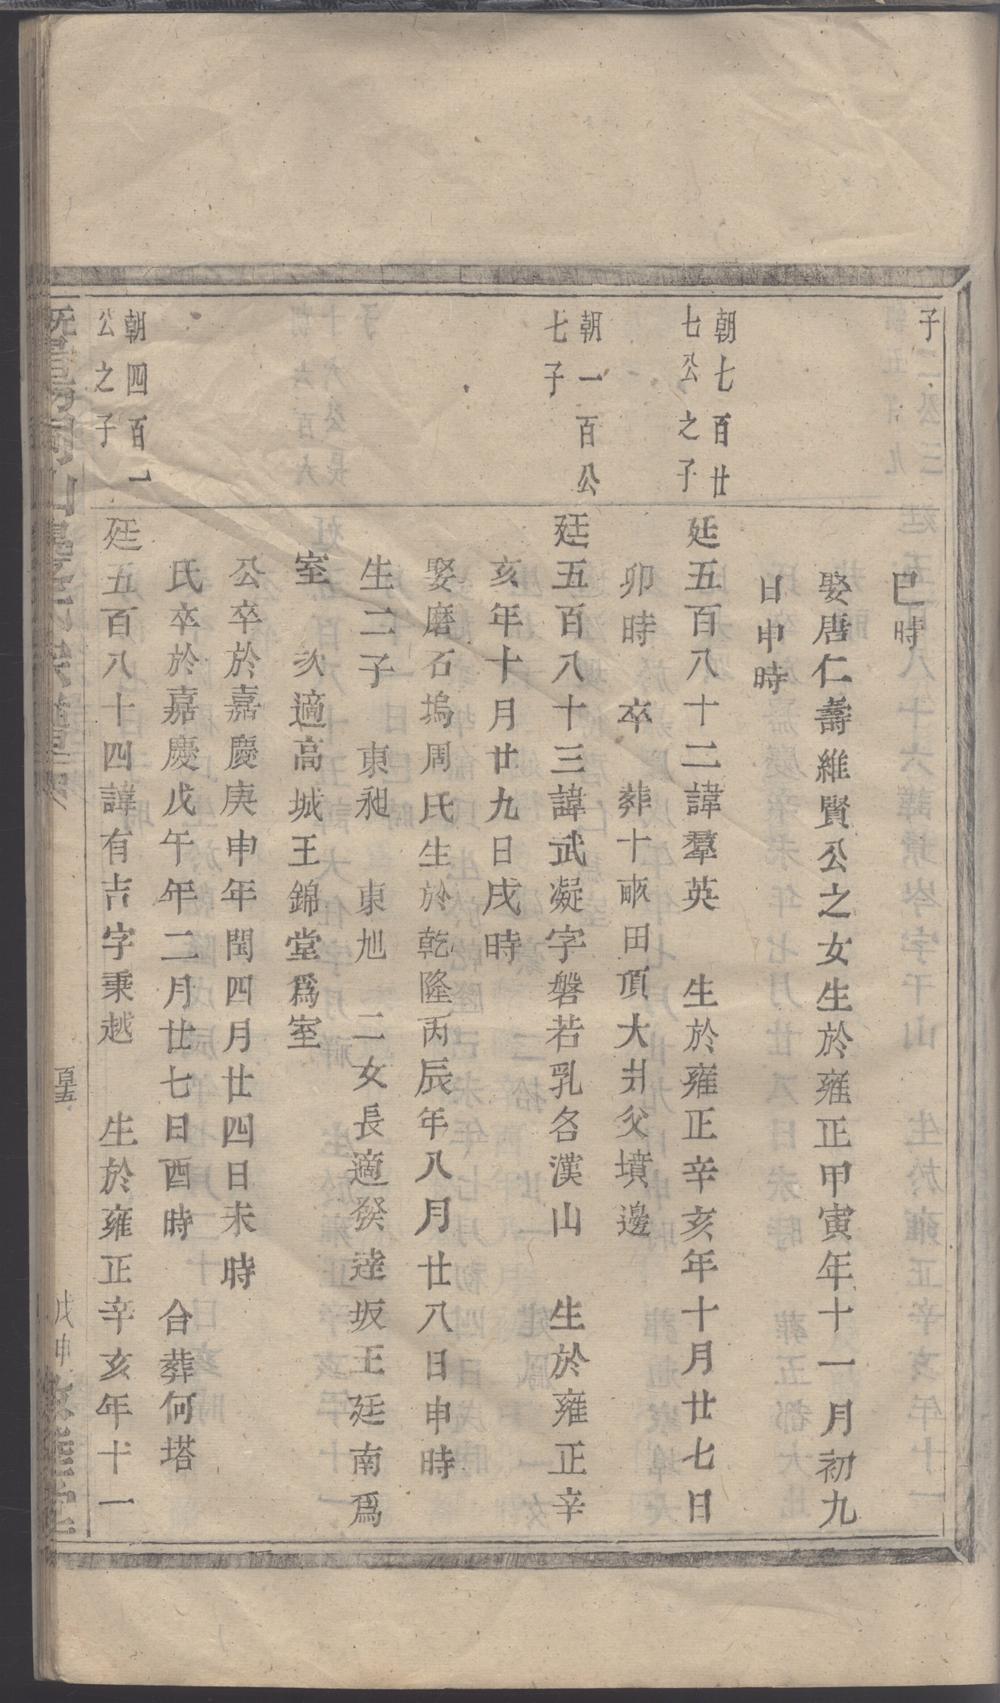 子
巳時
娶唐仁壽維賢公之女生於雍正甲寅年十一月初九
日申時
朝七百廿
七公之子
廷五百八十二諱羣英　生於雍正辛亥年十月廿七日
卯時　卒　葬十畝田頂大井父墳邊
朝一百公
七子
廷五百八十三諱武凝字磐若乳名漢山　生於雍正辛
亥年十月廿九日戌時
娶磨石塢周氏生於乾隆丙辰年八月廿八日申時
生二子　東昶　東旭　二女長適發達坂王廷南爲
室　次適高城王錦堂爲室
公卒於嘉慶庚申年閏四月廿四日未時
氏卒於嘉慶戊午年二月廿七日酉時　合葬何塔
朝四百一
公之子
廷五百八十四諱有吉字秉越　生於雍正辛亥年十一
戊申